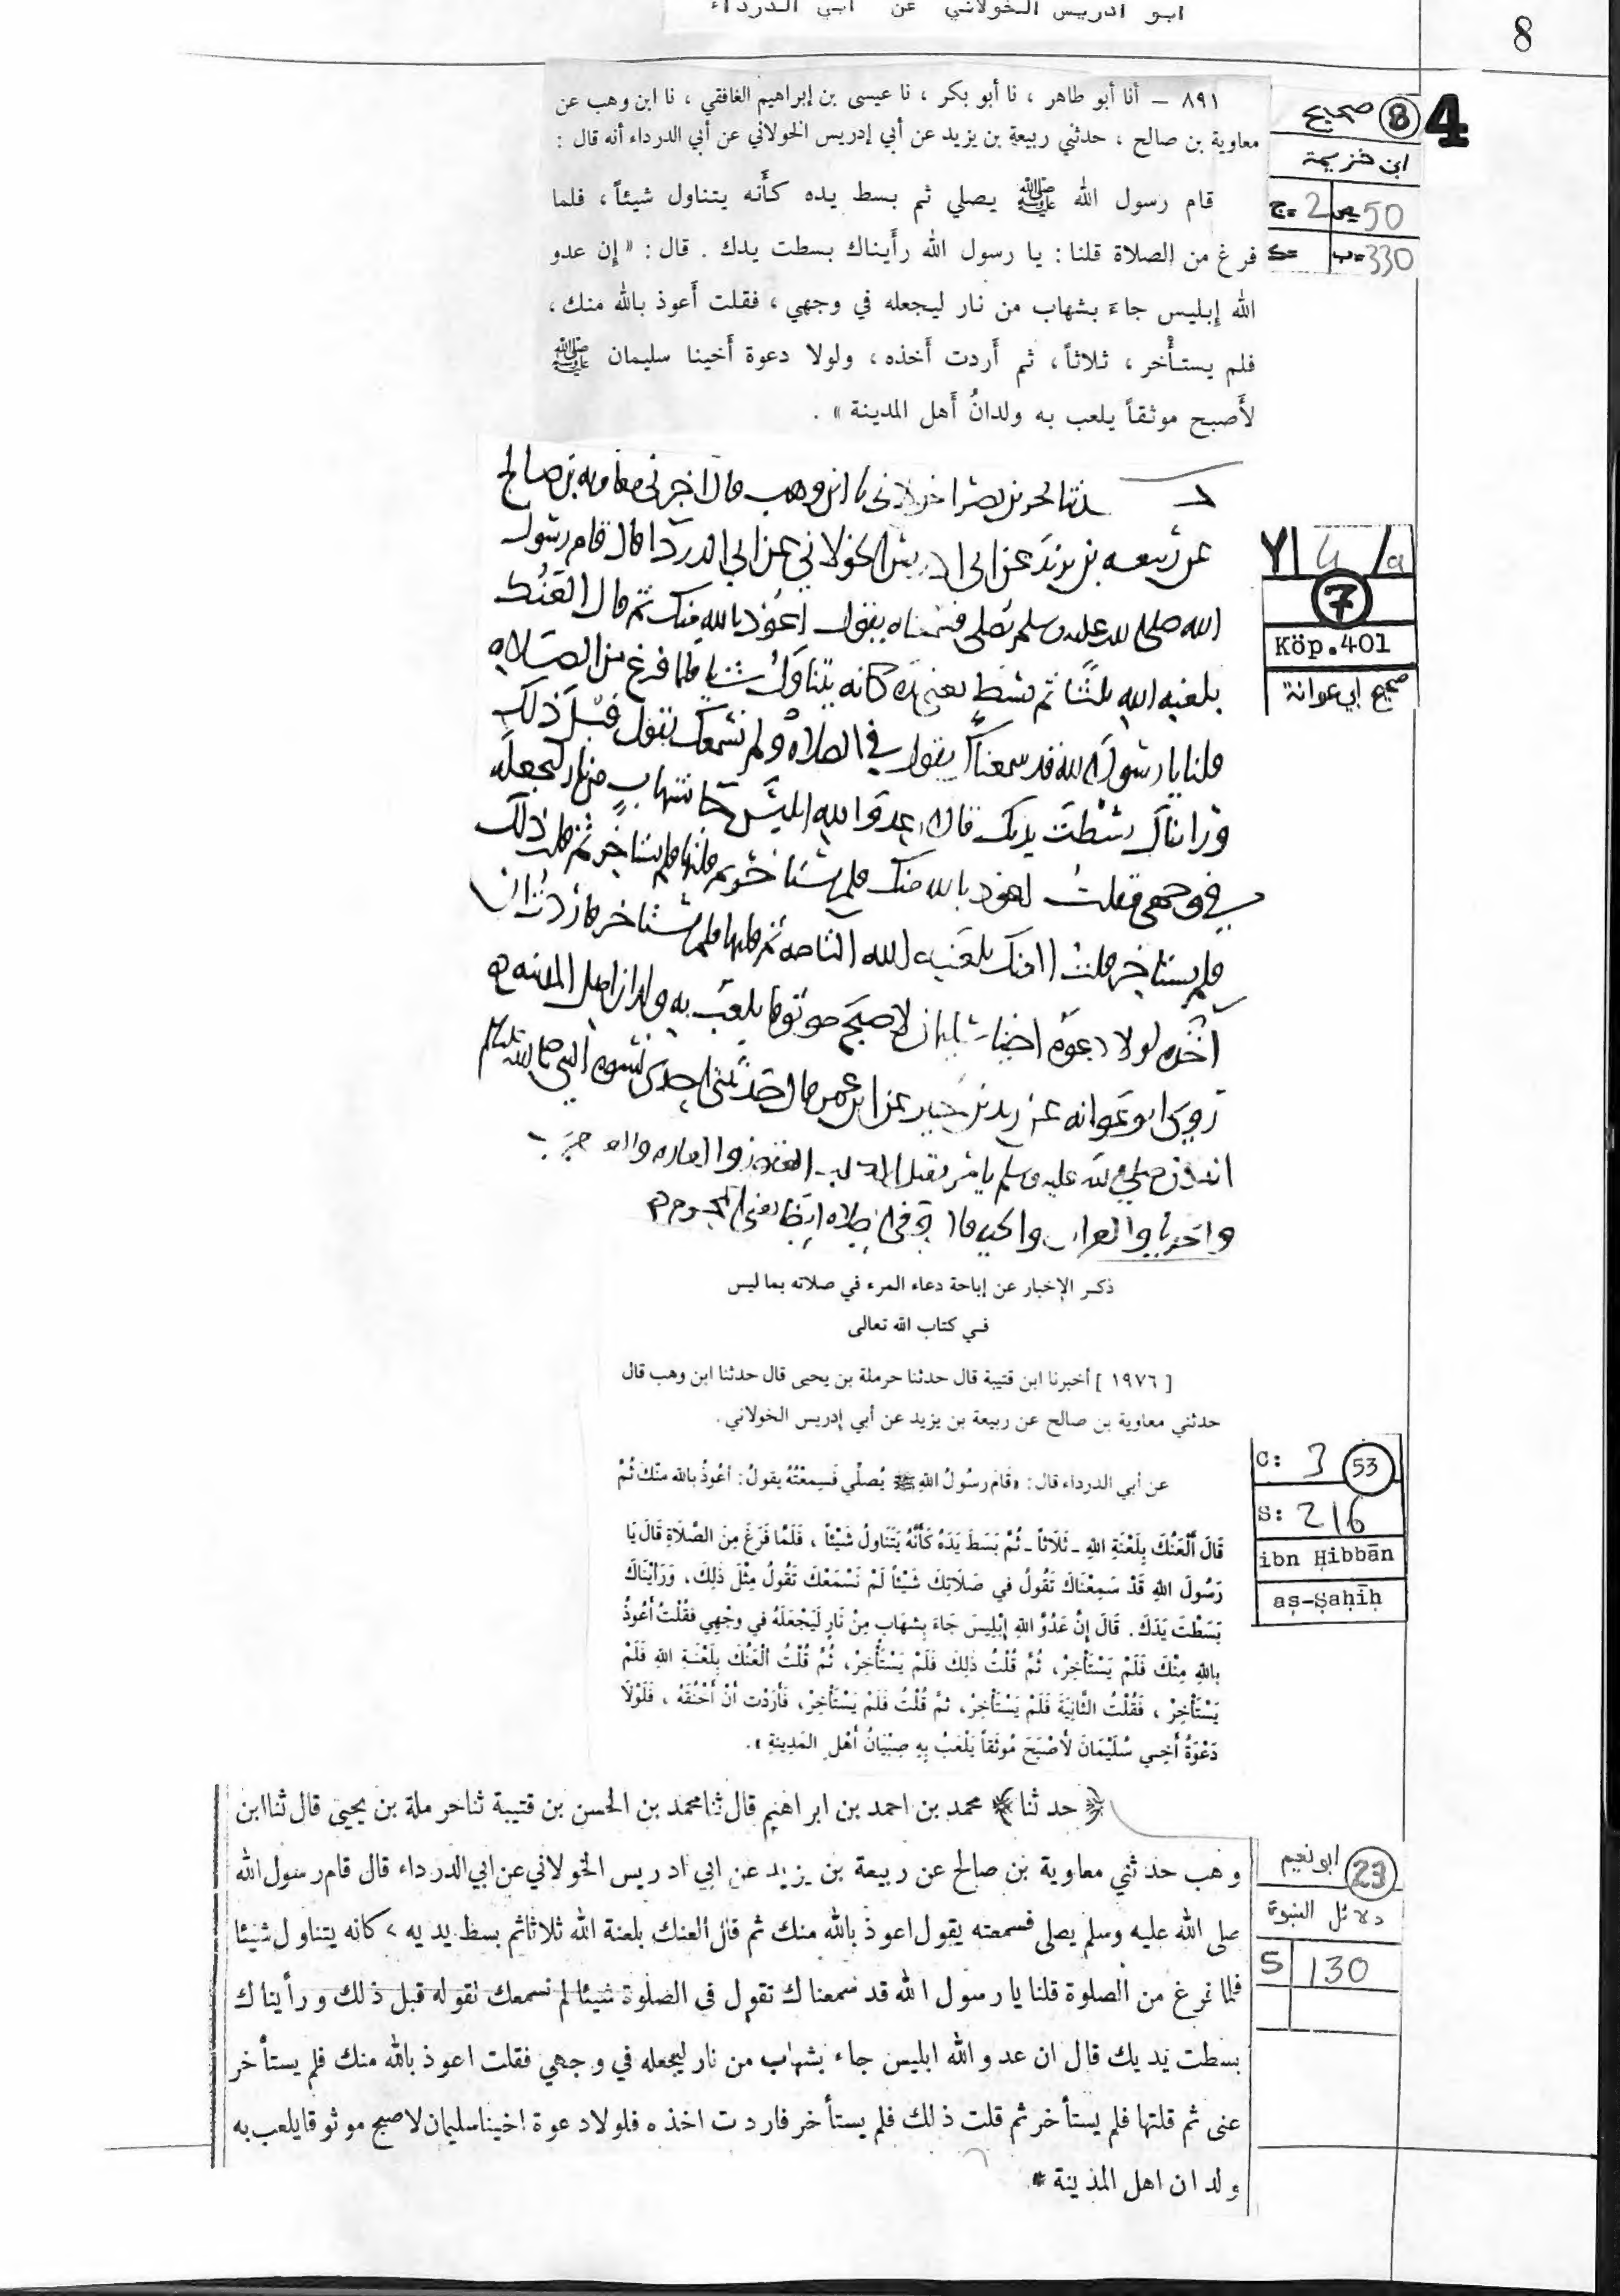 ابو ادريس الخولاني عن ابي الدرداء
8
٨٩١ - أنا أبو طاهر ، نا أبو بكر ، نا عيسى بن إبراهيم الغافقي ، نا ابن وهب عن
معاوية بن صالح ، حدثني ربيعة بن يزيد عن أبي إدريس الخولاني عن أبي الدرداء أنه قال :
قام رسول الله ﷺ يصلي ثم بسط يده كأنه يتناول شيئاً ، فلما
فرغ من الصلاة قلنا : يا رسول الله رأيناك بسطت يدك . قال : « إن عدو
الله إبليس جاءَ بشهاب من نار ليجعله في وجهي ، فقلت أعوذ بالله منك ،
فلم يستأخر ، ثلاثاً ، ثم أردت أخذه ، ولولا دعوة أخينا سليمان ﷺ
لأصبح موثقاً يلعب به ولدانُ أهل المدينة » .
4 8 صحيح
ابن خزيمة
ج= 2 ص= 50
ك= ب= 330
ابن وهب قال اخبرنى معاويه بن صالح
عن ربيعه بن يزيد عن ابى ادريس الخولاني عن ابي الدردا قال قام رسول
الله صلى الله عليه وسلم يصلى فسمعناه يقول اعوذ بالله منك ثم قال العنك
بلعنه الله ثلثا ثم بسط يعنى يده كانه يتناول شيا فلما فرغ من الصلاه
قلنا يا رسول الله قد سمعناك يقول في الصلاه ولم نسمعك تقول قبل ذلك
وراناك بسطت يدك قال عدو الله ابليس جا بشهاب من نار ليجعله
في وجهى فقلت اعوذ بالله منك فلم يستاخر ثم قلتها فلم يستاخر ثم قلت ذلك
فلم يستاخر قلت العنك بلعنه الله التامه ثم قلتها فلم يستاخر فاردت ان
آخذه لولا دعوه اخينا سليمان لاصبح موثوقا يلعب به ولدان اهل المدينه
روى ابو عوانه عن زيد بن جبير عن ابن عمر قال حدثتنى احدى نسوه النبي صلى الله عليه وسلم
Y| 4 /a
7
Köp.401
صحيح ابي عوانة
ذكر الإخبار عن إباحة دعاء المرء في صلاته بما ليس
في كتاب الله تعالى
[ ١٩٧٦ ] أخبرنا ابن قتيبة قال حدثنا حرملة بن يحيى قال حدثنا ابن وهب قال
حدثني معاوية بن صالح عن ربيعة بن يزيد عن أبي إدريس الخولاني .
عن أبي الدرداء قال : «قَامَ رسُولُ اللهِ ﷺ يُصلِّي فَسِمِعْتُهُ يقولُ : أعُوذُ بالله مِنْكَ ثُمَّ
قَالَ أَلْعَنُكَ بِلَعْنَةِ اللهِ - ثَلَاثاً - ثُمَّ بَسَطَ يَدَهُ كَأَنَّهُ يَتَنَاولُ شَيْئاً ، فَلَمَّا فَرَغَ مِنَ الصَّلَاةِ قَالَ يَا
رَسُولَ اللهِ قَدْ سَمِعْنَاكَ تَقُولُ في صَلَاتِكَ شَيْئاً لَمْ نَسْمَعْكَ تَقُولُ مِثْلَ ذَلِكَ ، وَرَأَيْنَاكَ
بَسَطْتَ يَدَكَ . قَالَ إِنَّ عَدُوَّ اللهِ إِبْلِيسَ جَاءَ بِشِهَابٍ مِنْ نَارٍ لَيَجْعَلَهُ في وجْهِي فَقُلْتُ أَعُوذُ
بِاللهِ مِنْكَ فَلَمْ يَسْتَأْخِرْ ، ثُمَّ قُلْتُ ذَلِكَ فَلَمْ يَسْتَأْخِرْ ، ثُمَّ قُلْتُ أَلْعَنُكَ بِلَعْنَةِ اللهِ فَلَمْ
يَسْتَأْخِرْ ، فَقُلْتُ الثَّانِيَةَ فَلَمْ يَسْتَأْخِرْ ، ثُمَّ قُلْتُ فَلَمْ يَسْتَأْخِرْ ، فَأَرَدْت أَنْ أَخْنُقَهُ ، فَلَوْلَا
دَعْوَةُ أَخِي سُلَيْمَانَ لَأَصْبَحَ مُوثَقاً يَلْعَبُ بِهِ صِبْيَانُ أَهْلِ المَدِينَةِ » .
C: 3 53
S: 216
ibn Ḥibbān
aṣ-Ṣaḥīḥ
﴿ حدثنا ﴾ محمد بن احمد بن ابراهيم قال ثنا محمد بن الحسن بن قتيبة ثنا حرملة بن يحيى قال ثنا ابن
وهب حدثني معاوية بن صالح عن ربيعة بن يزيد عن ابي ادريس الخولاني عن ابي الدرداء قال قام رسول الله
صلى الله عليه وسلم يصلى فسمعته يقول اعوذ بالله منك ثم قال العنك بلعنة الله ثلاثا ثم بسط يديه كانه يتناول شيئا
فلما فرغ من الصلوة قلنا يا رسول الله قد سمعناك تقول فى الصلوة شيئا لم نسمعك تقوله قبل ذلك ورأيناك
بسطت يديك قال ان عدو الله ابليس جاء بشهاب من نار ليجعله في وجهي فقلت اعوذ بالله منك فلم يستأخر
عنى ثم قلتها فلم يستأخر ثم قلت ذلك فلم يستأخر فاردت اخذه فلولا دعوة اخينا سليمان لاصبح موثوقا يلعب به
ولدان اهل المدينة *
ابو نعيم 23
دلائل النبوة
S 130